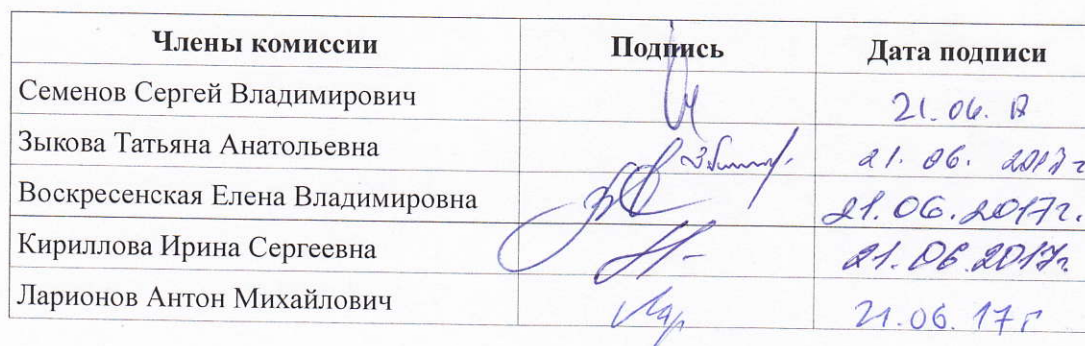 Члены комиссии Подпись Дата подписи
Семенов Сергей Владимирович 21.06.17
Зыкова Татьяна Анатольевна 21.06. 2017г
Воскресенская Елена Владимировна 21.06.2017г.
Кириллова Ирина Сергеевна 21.06.2017г
Ларионов Антон Михайлович Лар 21.06.17г